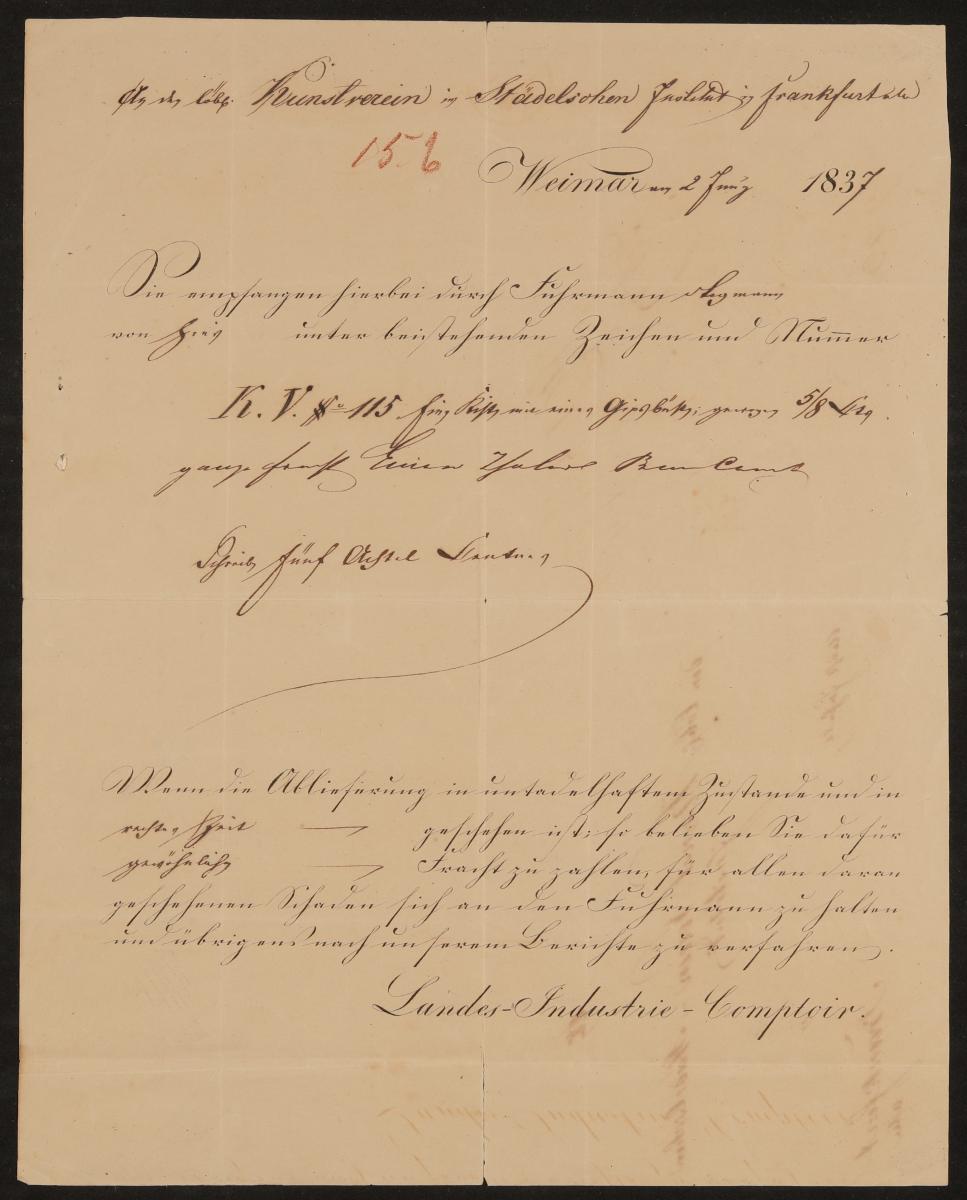 An den löbl. Kunstverein in Städelschen Institut in Frankfurt a/M
156
Weimar am 2 Juny 1837
Sie empfangen hierbei durch Fuhrmann
von hier unter beistehenden Zeichen und Nummer
K. V. No 115 Eine Kiste mit einer Gipsbüste; gewogen 5/8 Ctr
Einen Thaler
Schreibe fünf Achtel Centner
Wenn die Ablieferung in untadelhaftem Zustande und in
rechter Zeit — geschehen ist; so belieben Sie dafür
gewöhnliche — Fracht zu zahlen, für allen daran
geschehenen Schaden sich an den Fuhrmann zu halten
und übrigens nach unserem Berichte zu verfahren.
Landes-Industrie-Comptoir.